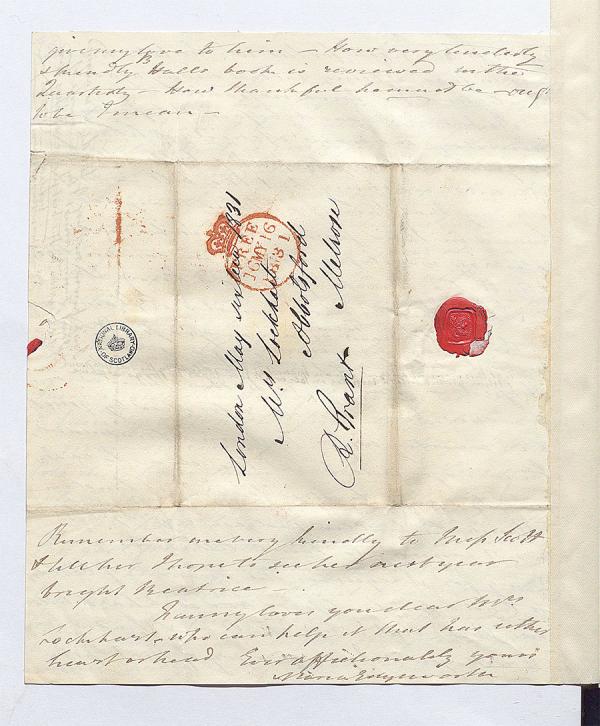 give my love to him – How very tenderly
& kindly B Halls book is reviewed in the
Quarterly – How thankful he
to be I mean –
London May sixteen 1831
Mrs Lockhart
Abbotsford
Melrose
R. Grant
FREE
16 MY 16
1831
NATIONAL LIBRARY
OF SCOTLAND
Remember me very kindly to Miss Scott
& tell her I hope to see her next year
bright Beatrice –
Fanny loves you dear Mrs
Lockhart, who can help it that has either
heart or head Ever affectionately yours
Maria Edgeworth